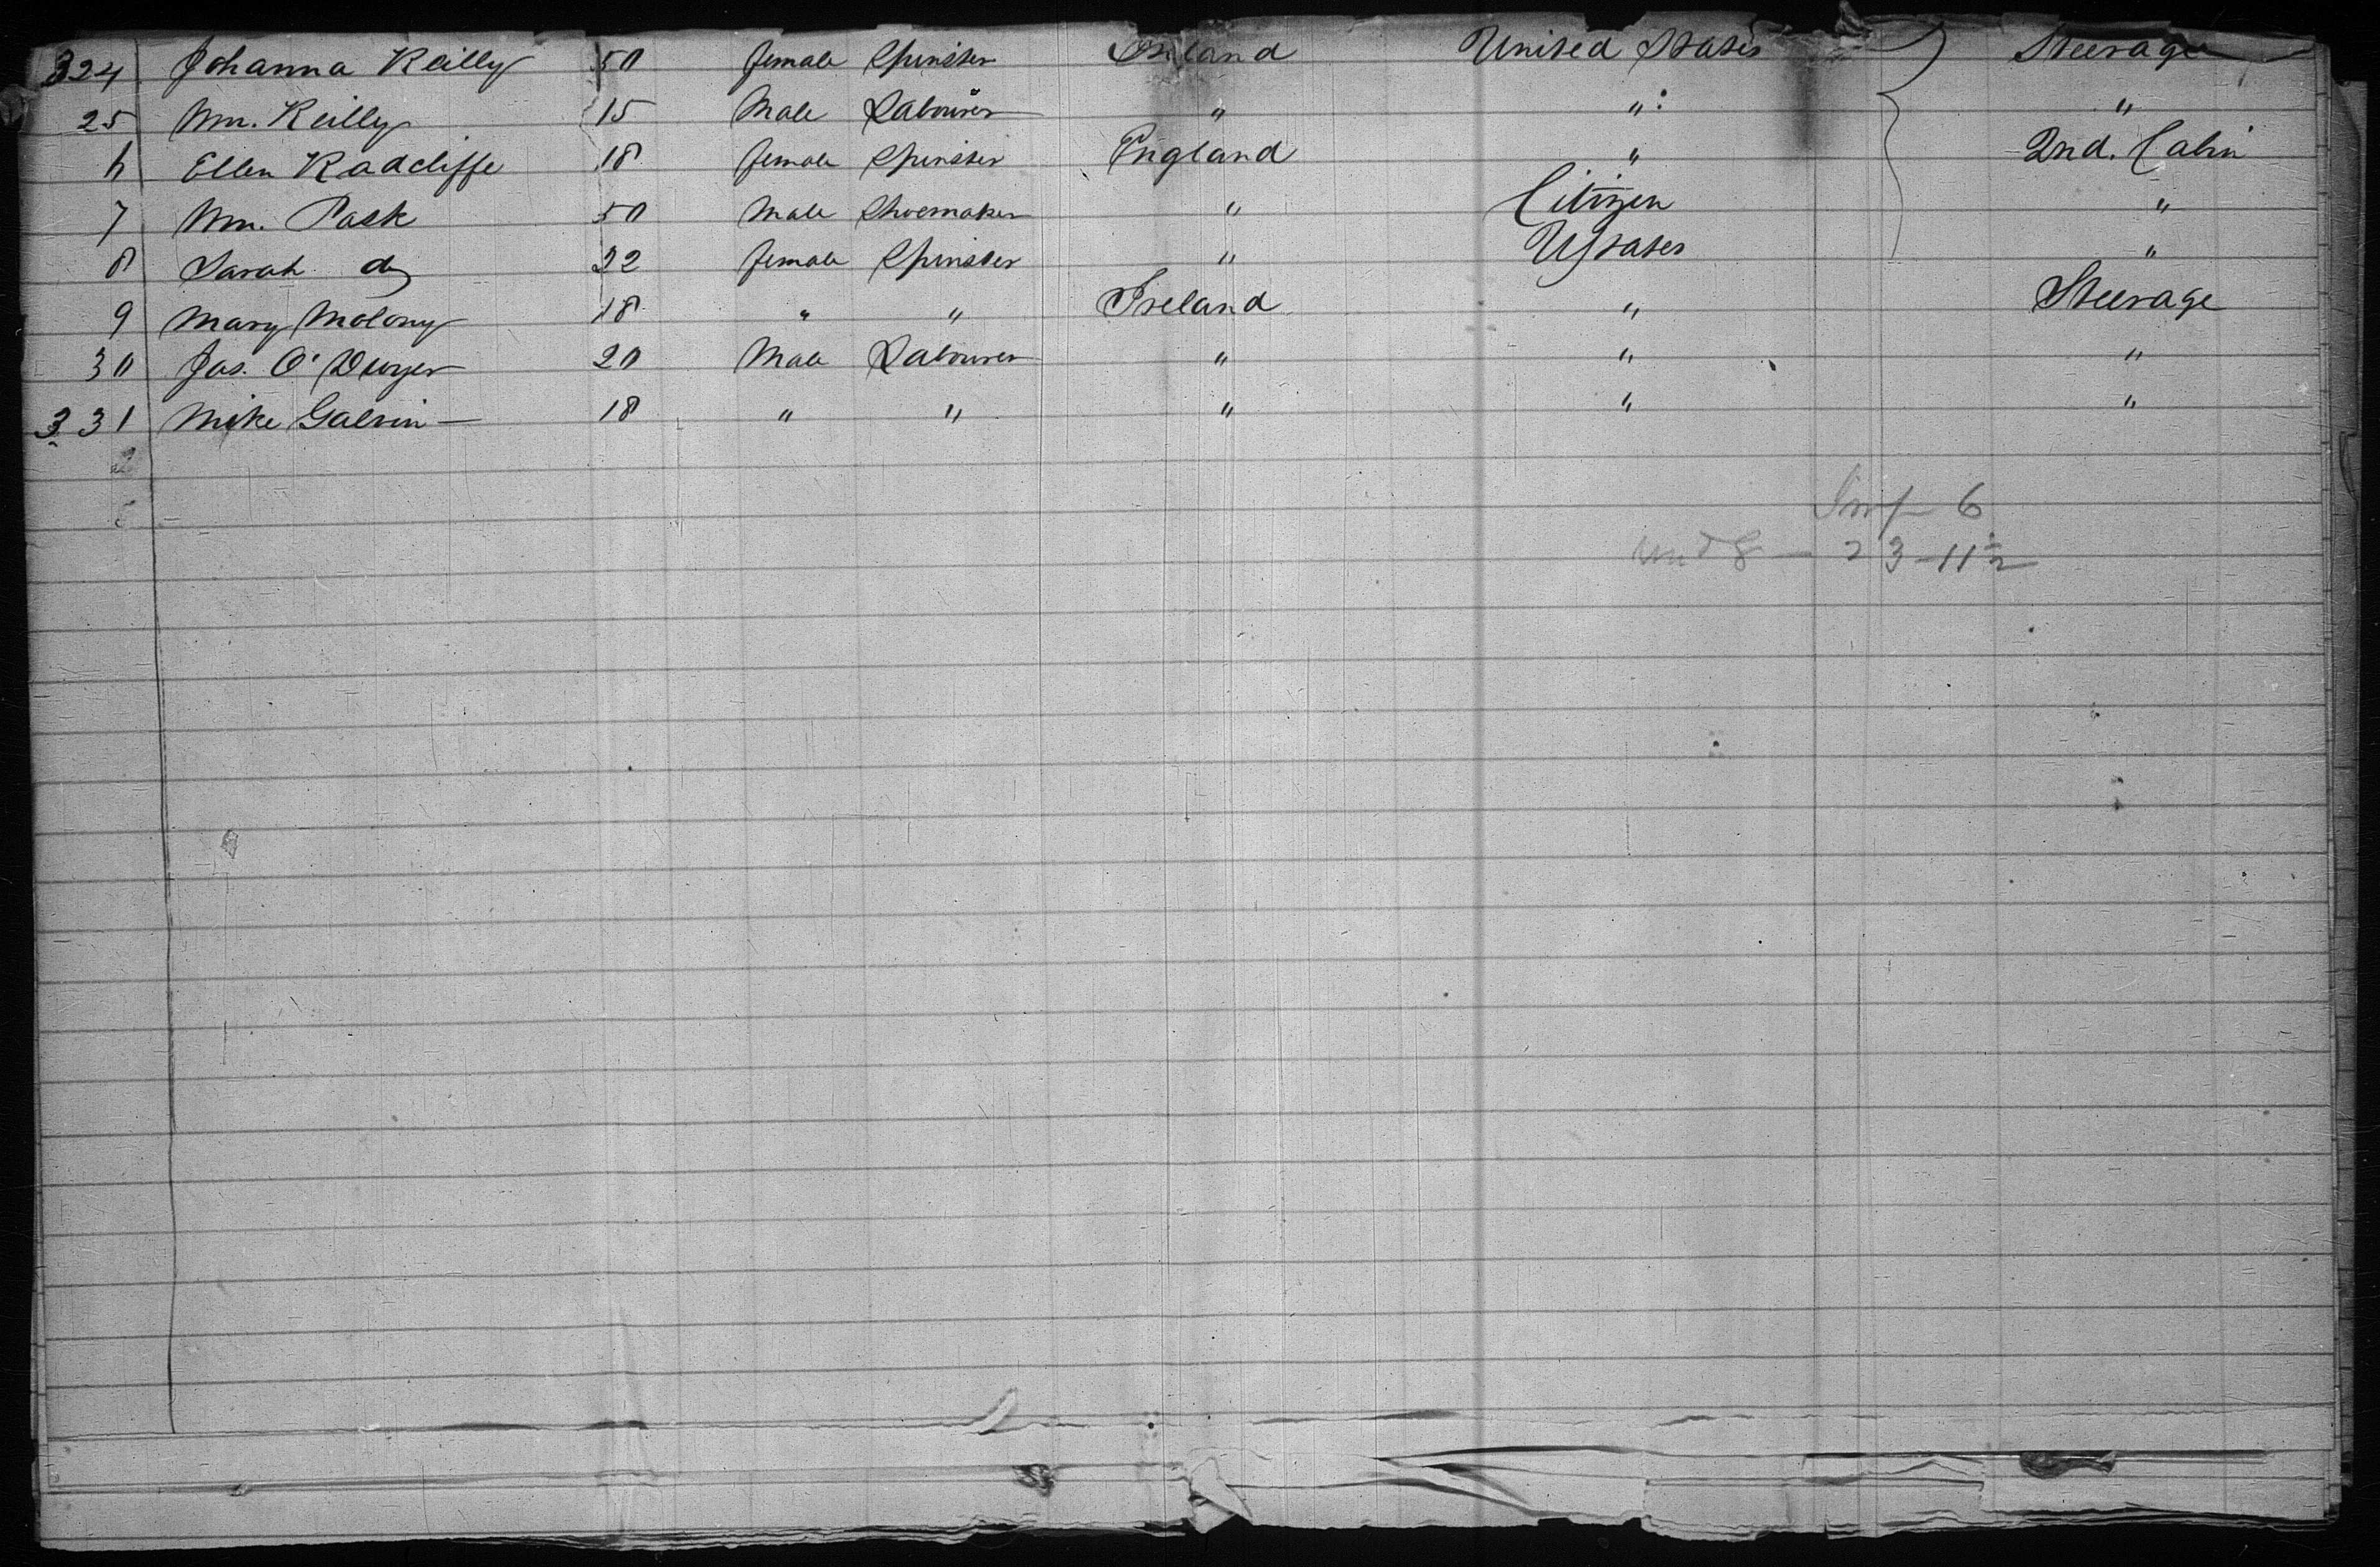 324 Johanna Reilly 50 female Spinster Ireland United States Steerage
25 Wm. Reilly 15 Male Labourer " " "
6 Ellen Radcliffe 18 female Spinster England " 2nd. Cabin
7 Wm. Pask 50 Male Shoemaker " Citizen "
8 Sarah do 22 female Spinster " UStates "
9 Mary Molony 18 " " Ireland " Steerage
30 Jas. O'Dwyer 20 Male Labourer " " "
331 Mike Galvin 18 " " " " "
Inf 6
und 8 - 23 - 11½